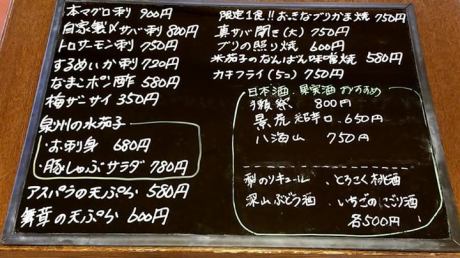 本マグロ刺 900円
自家製〆サバ刺 800円
トロサーモン刺 750円
するめいか刺 720円
なまこポン酢 580円
梅サーサイ 350円
泉州の水茄子
・お刺身 680円
・豚しゃぶサラダ 780円
アスパラの天ぷら 580円
舞茸の天ぷら 600円
限定1食!!おっきなブリかま焼 750円
真サバ開き(大) 750円
ブリの照り焼 600円
米茄子のなんばん味噌焼 580円
カキフライ(5コ) 750円
日本酒、果実酒おすすめ
獺祭 800円
景虎 超辛口 650円
八海山 750円
梨のリキュール、とろこく桃酒
深山ぶどう酒、いちごのにごり酒
各500円